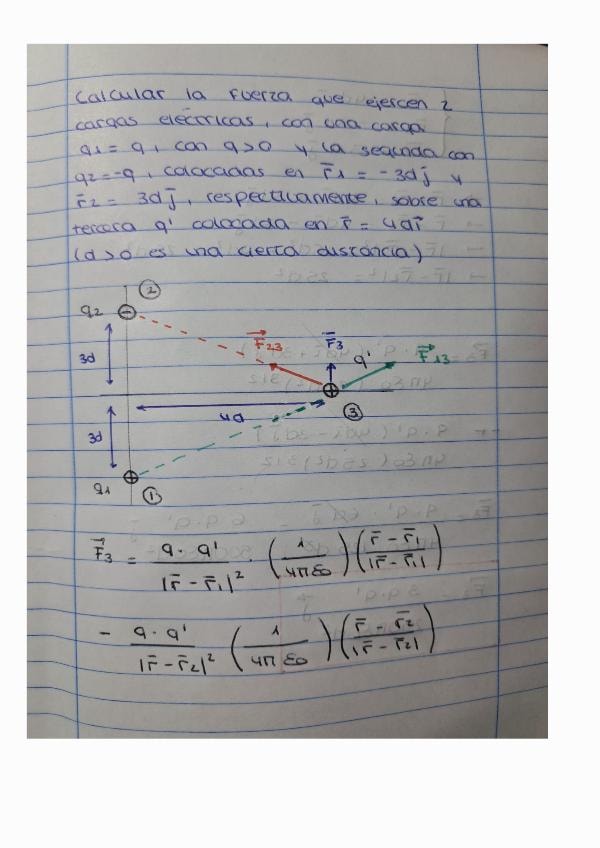 Calcular la fuerza que ejercen 2
cargas eléctricas, con una carga
q1 = q, con q>0 y la segunda con
q2=-q, colocadas en r̄1 = -3d j̄ y
r̄2 = 3d j̄, respectivamente, sobre una
tercera q' colocada en r̄ = 4d ī
(d>0 es una cierta distancia)
②
q2 ⊖
F⃗23 F̄3 q' F⃗13
3d
⊕
4d ③
3d
q1 ⊕ ①
F⃗3 = q · q' / |r̄ - r̄1|² · (1 / 4πε0) (r̄ - r̄1 / |r̄ - r̄1|)
- q · q' / |r̄ - r̄2|² (1 / 4πε0) (r̄ - r̄2 / |r̄ - r̄2|)